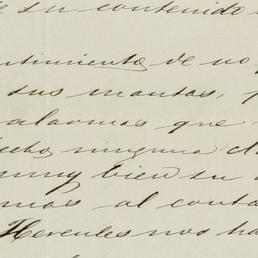 su contenido
timiento de no
sus mantas,
alarmas que
ninguna
muy bien su
mos al conta
Hercules nos ha